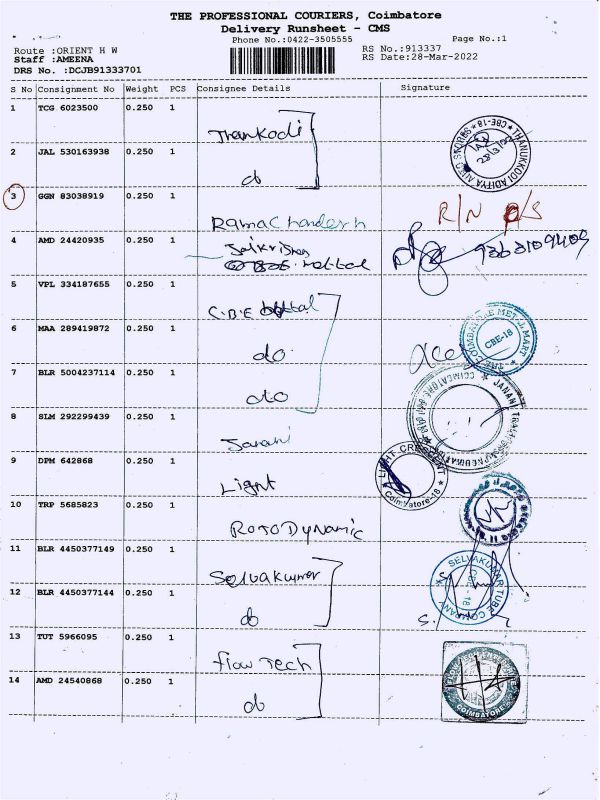 THE PROFESSIONAL COURIERS, Coimbatore
Delivery Runsheet - CMS
Phone No.:0422-3505555 Page No.:1
Route :ORIENT H W RS No.:913337
Staff :AMEENA RS Date:28-Mar-2022
DRS No. :DCJB91333701
S No Consignment No Weight PCS Consignee Details Signature
1 TCG 6023500 0.250 1 Thankodi
THANUKKODI ADITYA AUTO STORES ★ CBE-18 ★
28/3/22
2 JAL 530163938 0.250 1 do
3 GGN 83038919 0.250 1 Ramachandesh R/N
4 AMD 24420935 0.250 1 Jaikrishna
metal
5 VPL 334187655 0.250 1 C.B.E metal
6 MAA 289419872 0.250 1 do
THE COIMBATORE METAL MART
CBE-18
7 BLR 5004237114 0.250 1 do
8 SLM 292299439 0.250 1 Janani
JANANI
COIMBATORE
9 DPM 642868 0.250 1 Light
LIGHT CRESCENT
Coimbatore-18
10 TRP 5685823 0.250 1 ROTODYNAMIC
11 BLR 4450377149 0.250 1 Selvakumar
SELVAKUMAR TUBE COMPANY
CBE-18
12 BLR 4450377144 0.250 1 do
S.
13 TUT 5966095 0.250 1 flow Tech
14 AMD 24540868 0.250 1 do
COIMBATORE